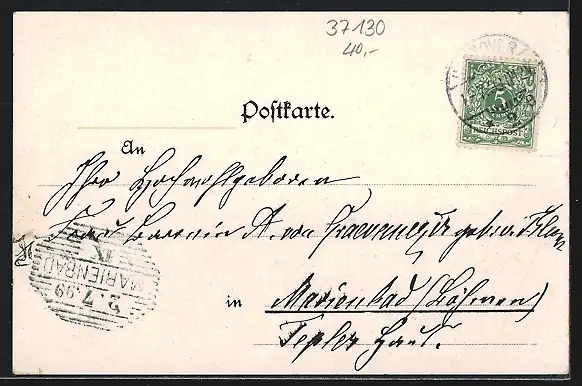 37130
40,-
HANNOVER
5
REICHSPOST
Postkarte.
An
Ihro Hochwohlgeboren
Frau Baronin A. von
in Marienbad (Böhmen)
Tepler Haus.
MARIENBAD
2.7.99